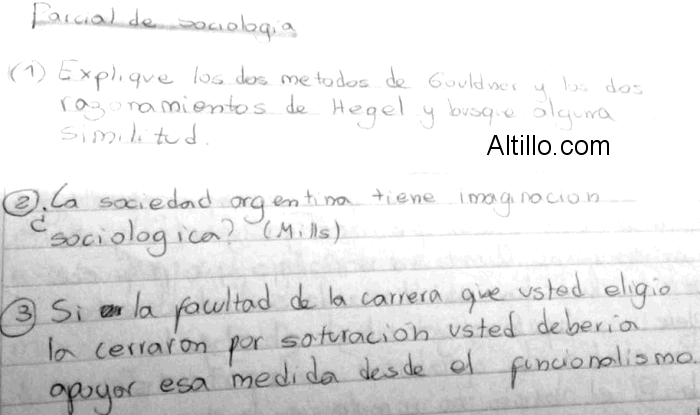 Parcial de sociologia
(1) Explique los dos metodos de Gouldner y los dos
razonamientos de Hegel y busque alguna
similitud.
Altillo.com
2). La sociedad argentina tiene imaginacion
¿sociologica? (Mills)
3 Si la facultad de la carrera que usted eligio
la cerraron por saturación usted deberia
apoyar esa medida desde el funcionalismo